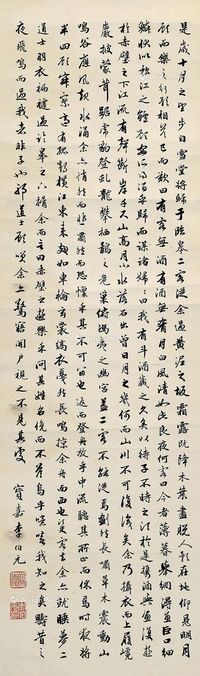 是歲十月之望步自雪堂將歸于臨皋二客從余過黃泥之坂霜露既降木葉盡脫人影在地仰見明月
顧而樂之行歌相答已而歎曰有客無酒有酒無肴月白風清如此良夜何客曰今者薄暮舉網得魚巨口細
鱗狀似松江之鱸顧安所得酒乎歸而謀諸婦婦曰我有斗酒藏之久矣以待子不時之須於是攜酒與魚復遊
於赤壁之下江流有聲斷岸千尺山高月小水落石出曾日月之幾何而山川不可復識矣余乃攝衣而上履巉
巖披蒙茸踞虎豹登虬龍攀栖鶻之危巢俯馮夷之幽宮蓋二客不能從焉劃然長嘯草木震動山
鳴谷應風起水涌余亦悄然而悲肅然而恐凜乎其不可留也返而登舟放乎中流聽其所止而休焉時夜將
半四顧寂寥適有孤鶴橫江東來翅如車輪玄裳縞衣戛然長鳴掠余舟而西也須臾客去余亦就睡夢二
道士羽衣翩躚過臨皋之下揖余而言曰赤壁之遊樂乎問其姓名俛而不答嗚乎噫嘻我知之矣疇昔之
夜飛鳴而過我者非子也耶道士顧笑余亦驚寤開戶視之不見其處 寶嘉李伯元